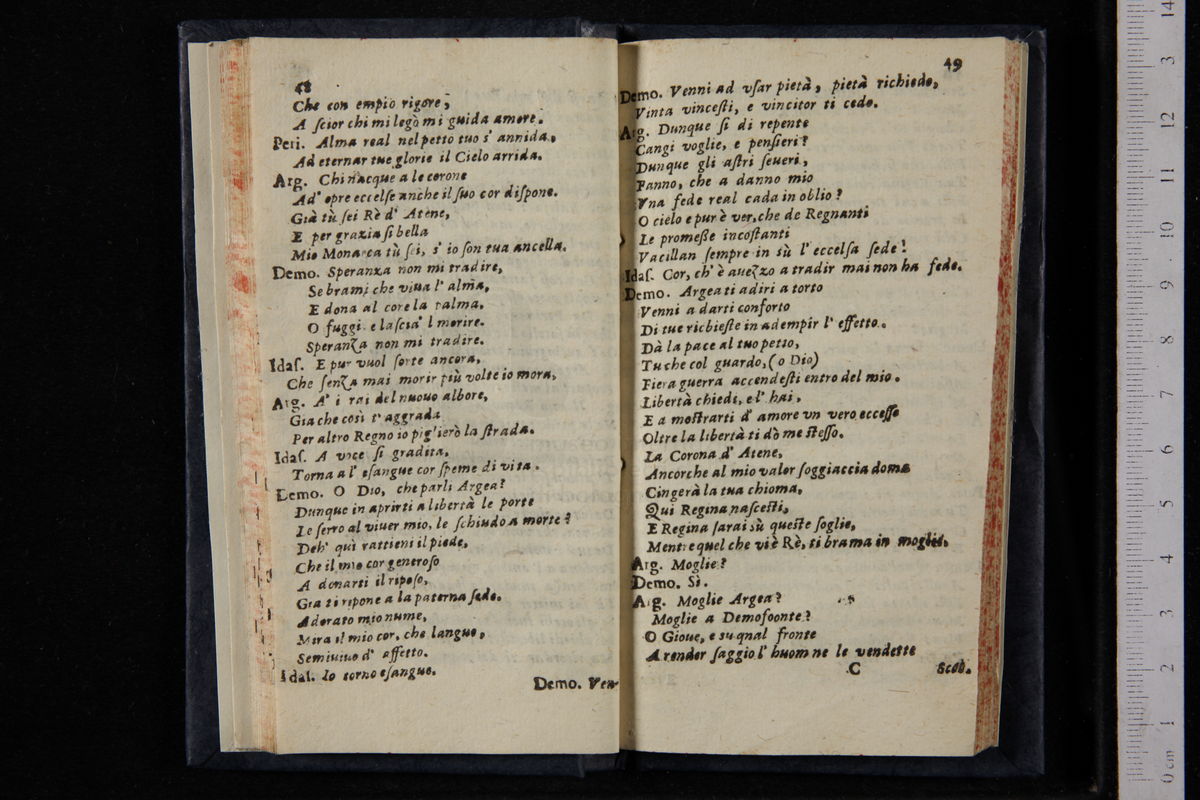 48
Che con empio rigore,
A ſcior chi mi legò mi guida amore.
Peri. Alma real nel petto tuo s' annida,
Ad eternar tue glorie il Cielo arrida.
Arg. Chi nacque a le corone
Ad' opre eccelſe anche il ſuo cor diſpone.
Già tù ſei Rè d' Atene,
E per grazia ſi bella
Mio Monarca tù ſei, s' io ſon tua ancella.
Demo. Speranza non mi tradire,
Se brami che viua l' alma,
E dona al core la palma.
O fuggi e laſcia' l morire.
Speranza non mi tradire.
Idaſ. E pur vuol ſorte ancora,
Che ſenza mai morir più volte io mora,
Arg. A' i rai del nuouo albore,
Gia che così t' aggrada
Per altro Regno io piglierò la ſtrada.
Idaſ. A voce ſi gradita,
Torna a l' eſangue cor ſpeme di vita.
Demo. O Dio, che parli Argea?
Dunque in aprirti a libertà le porte
Le ſerro al viuer mio, le ſchiudo a morte?
Deh' quì rattieni il piede,
Che il mio cor generoſo
A donarti il ripoſo,
Gia ti ripone a la paterna ſede.
Adorato mio nume,
Mira il mio cor, che langue,
Semiuiuo d' affetto.
Idaſ. Io torno eſangue.
Demo. Ven-
49
Demo. Venni ad vſar pietà, pietà richiedo,
Vinta vinceſti, e vincitor ti cedo.
Arg. Dunque ſi di repente
Cangi voglie, e penſieri?
Dunque gli aſtri ſeueri,
Fanno, che a danno mio
Vna fede real cada in oblio?
O cielo e pur è ver, che de Regnanti
Le promeße incoſtanti
Vacillan ſempre in sù l' eccelſa ſede!
Idaſ. Cor, ch' è auezzo a tradir mai non ha fede.
Demo. Argea ti adiri a torto
Venni a darti conforto
Di tue richieſte in adempir l' effetto.
Dà la pace al tuo petto,
Tu che col guardo, (o Dio)
Fiera guerra accendeſti entro del mio.
Libertà chiedi, e l' hai,
E a moſtrarti d' amore vn vero ecceſſo
Oltre la libertà ti dò me ſteſſo.
La Corona d' Atene,
Ancorche al mio valor ſoggiaccia doma
Cingerà la tua chioma,
Qui Regina naſceſti,
E Regina ſarai sù queſte ſoglie,
Mentre quel che vi è Rè, ti brama in moglie.
Arg. Moglie?
Demo. Sì.
Arg. Moglie Argea?
Moglie a Demofoonte?
O Gioue, e su qual fronte
A render ſaggio l' huom ne le vendette
C
Scoc.
0 cm 1 2 3 4 5 6 7 8 9 10 11 12 3 14